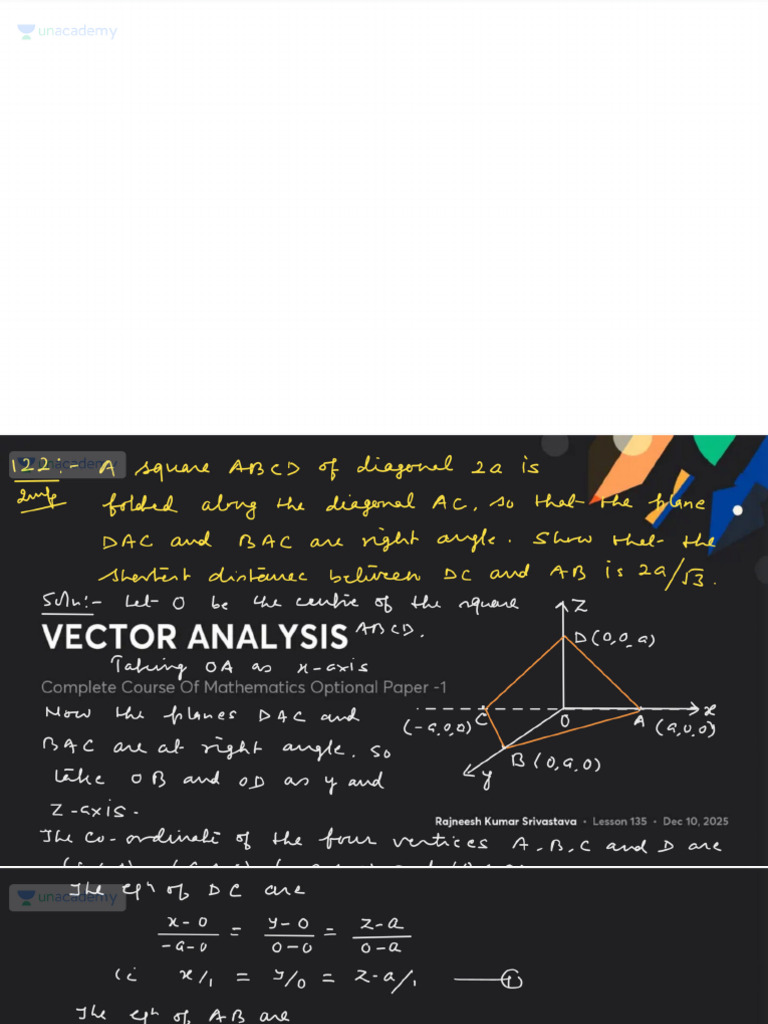 unacademy
122:- A square ABCD of diagonal 2a is
folded along the diagonal AC, so that the plane
DAC and BAC are right angle. Show that the
shortest distance between DC and AB is 2a/√3.
Soln:- Let O be the centre of the square
ABCD.
VECTOR ANALYSIS
Taking OA as x-axis
Complete Course Of Mathematics Optional Paper -1
Now the planes DAC and
BAC are at right angle. so
take OB and OD as y and
z-axis.
Z
D(0,0,a)
x
C
(-a,0,0)
O
A
(a,0,0)
B(0,a,0)
y
Rajneesh Kumar Srivastava • Lesson 135 • Dec 10, 2025
The co-ordinate of the four vertices A, B, C and D are
unacademy
The eqn of DC are
x-0/-a-0 = y-0/0-0 = z-a/0-a
(i x/1 = y/0 = z-a/1 —①
The eqn of AB are